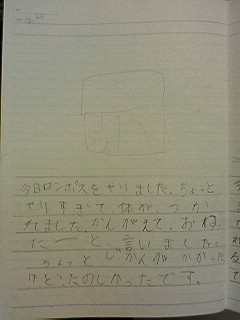 今日ロンポスをやりました。ちょっと
やりすぎて、体が、つか
れました。かんがえて、おね、
たーと、言いました。
ちょっとじかんがかかった
けど、たのしかったです。